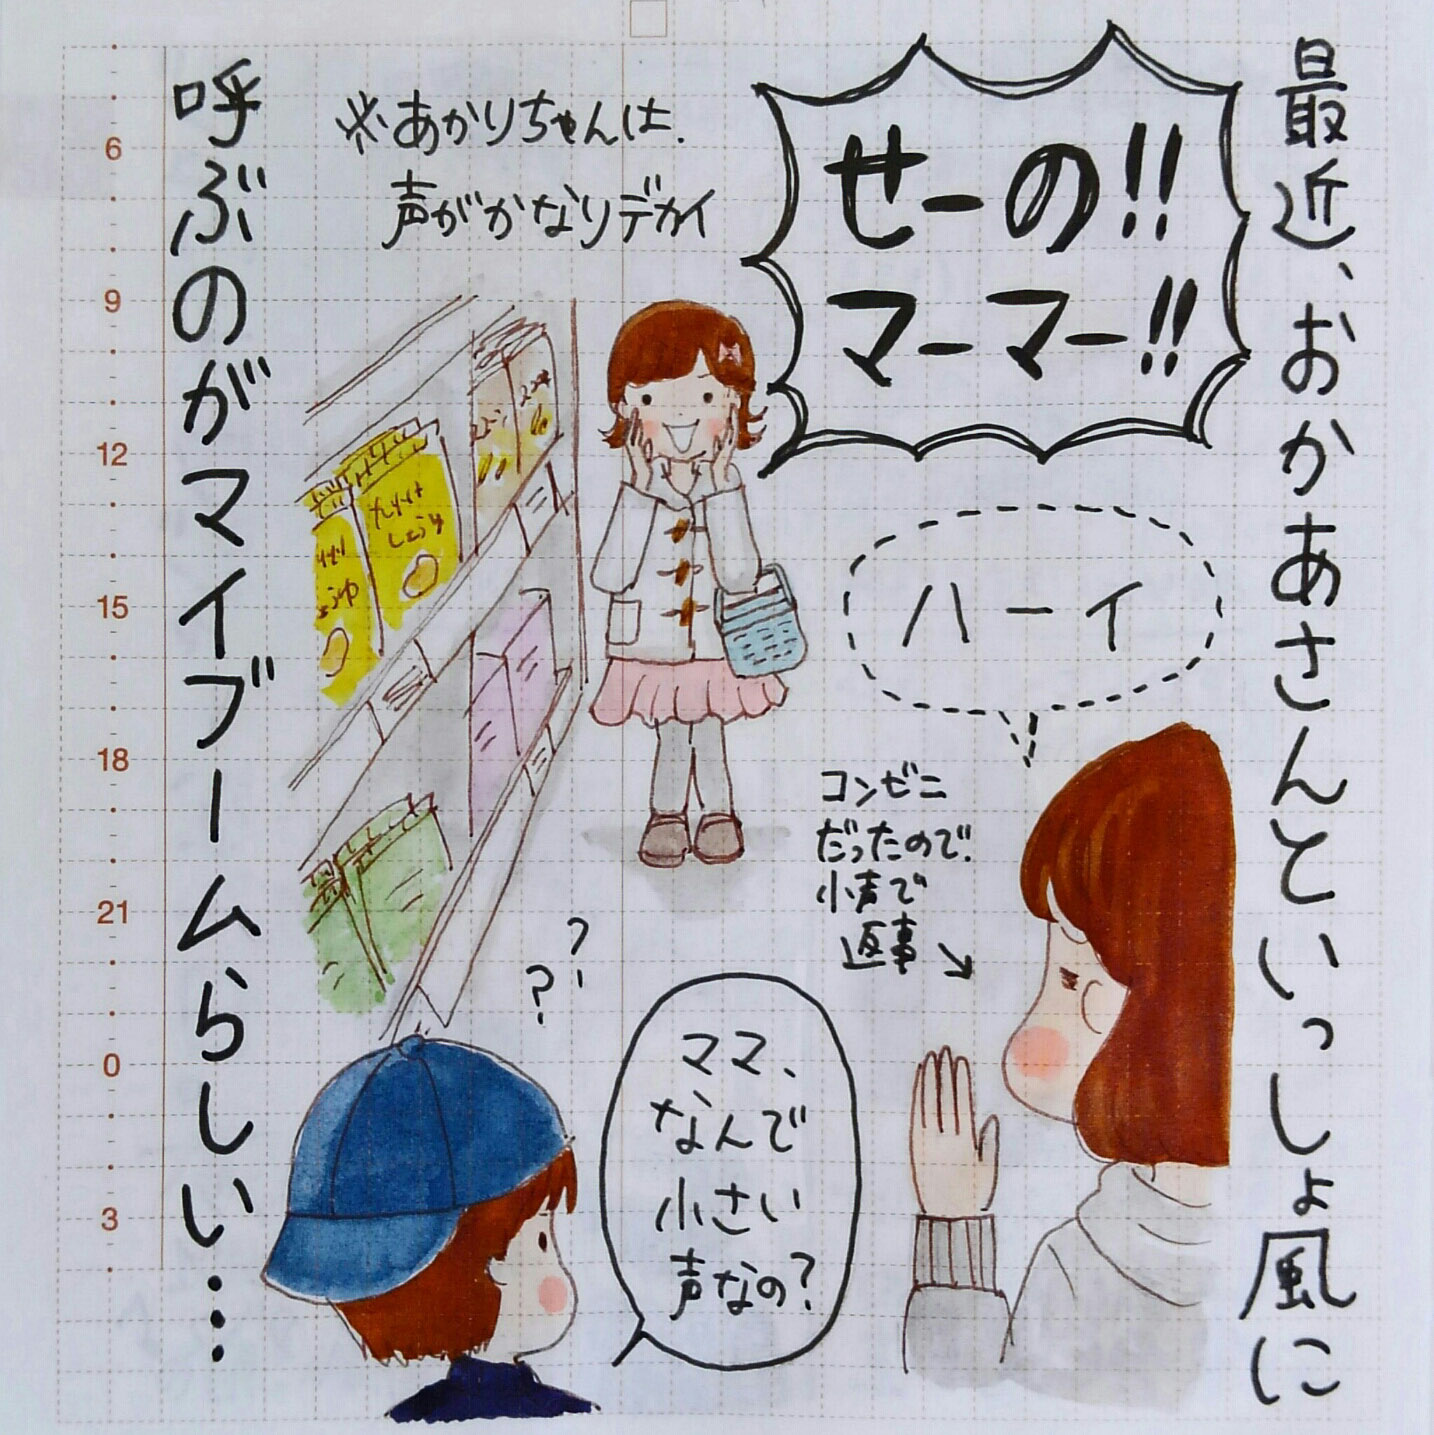 最近、おかあさんといっしょ風に
呼ぶのがマイブームらしい…
せーの!!
マーマー!!
※あかりちゃんは、
声がかなりデカイ
ハーイ
コンビニ
だったので、
小声で
返事
ママ、
なんで
小さい
声なの?
?
?
しょうゆ
6
9
12
15
18
21
0
3